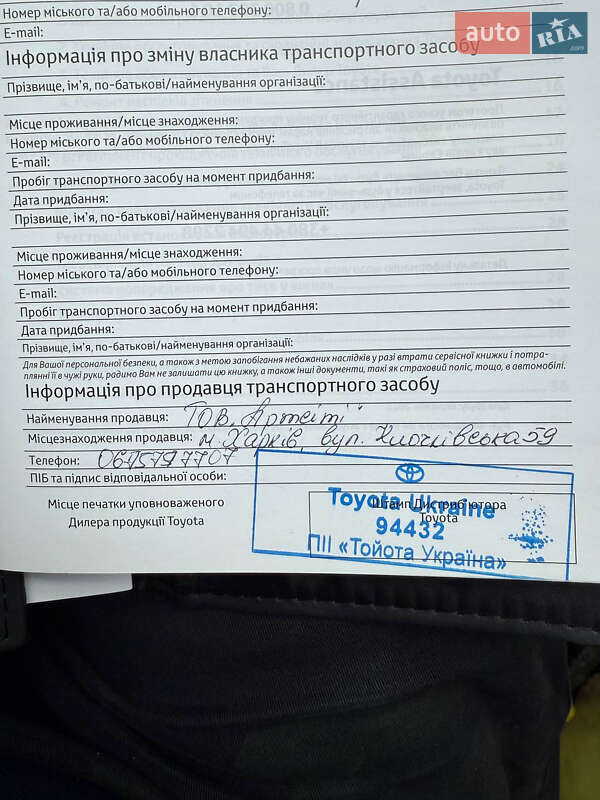 Номер міського та/або мобільного телефону:
E-mail:
auto RIA.com
Інформація про зміну власника транспортного засобу
Прізвище, ім'я, по-батькові/найменування організації:
Місце проживання/місце знаходження:
Номер міського та/або мобільного телефону:
E-mail:
Пробіг транспортного засобу на момент придбання:
Дата придбання:
Прізвище, ім'я, по-батькові/найменування організації:
Місце проживання/місце знаходження:
Номер міського та/або мобільного телефону:
E-mail:
Пробіг транспортного засобу на момент придбання:
Дата придбання:
Прізвище, ім'я, по-батькові/найменування організації:
Для Вашої персональної безпеки, а також з метою запобігання небажаних наслідків у разі втрати сервісної книжки і потра-
плянні її в чужі руки, радимо Вам не залишати цю книжку, а також інші документи, такі як страховий поліс, тощо, в автомобілі.
Інформація про продавця транспортного засобу
Найменування продавця: ТОВ. Артсіті
Місцезнаходження продавця: м. Харків, вул. Клочківська 59
Телефон: 0675797707
ПІБ та підпис відповідальної особи:
Місце печатки уповноваженого
Дилера продукції Toyota
Штамп Дистриб'ютора
Toyota
Toyota Ukraine
94432
ПІІ «Тойота Україна»